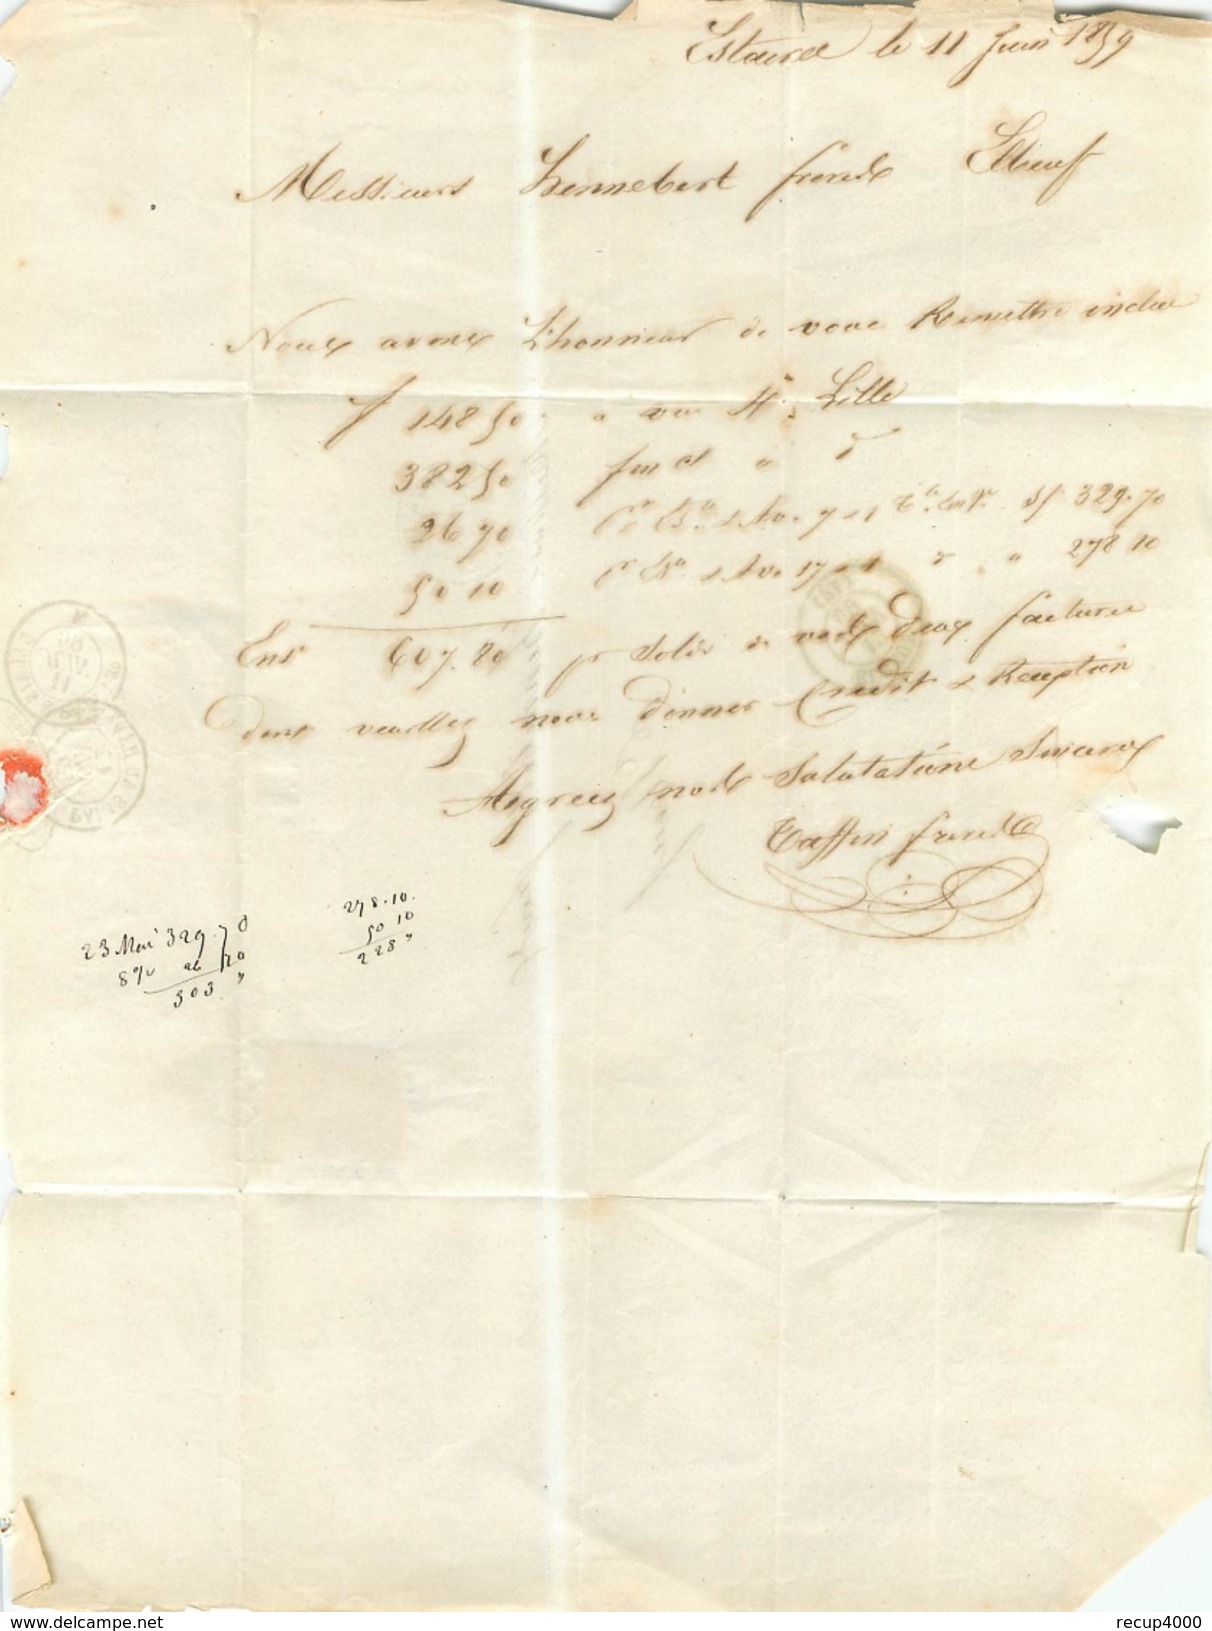 Estaires le 11 Juin 1859
Messieurs Hennebert frères Elbeuf
Nous avons L'honneur de vous Remettre inclus
f 148 50 a vue Sr Lille
382 50 fin ct " do
26 70 pr Es 329.70
50 10 pr Es 17 do " 278 10
Ens 607.80 pr Solde de vos deux factures
dont veuillez nous donner Crédit & Réception
Agréez nos Salutations Sincères
Taffin frères
23 Mai 329.70
8 % 26 70
303 "
278.10
50 10
228 "
recup4000